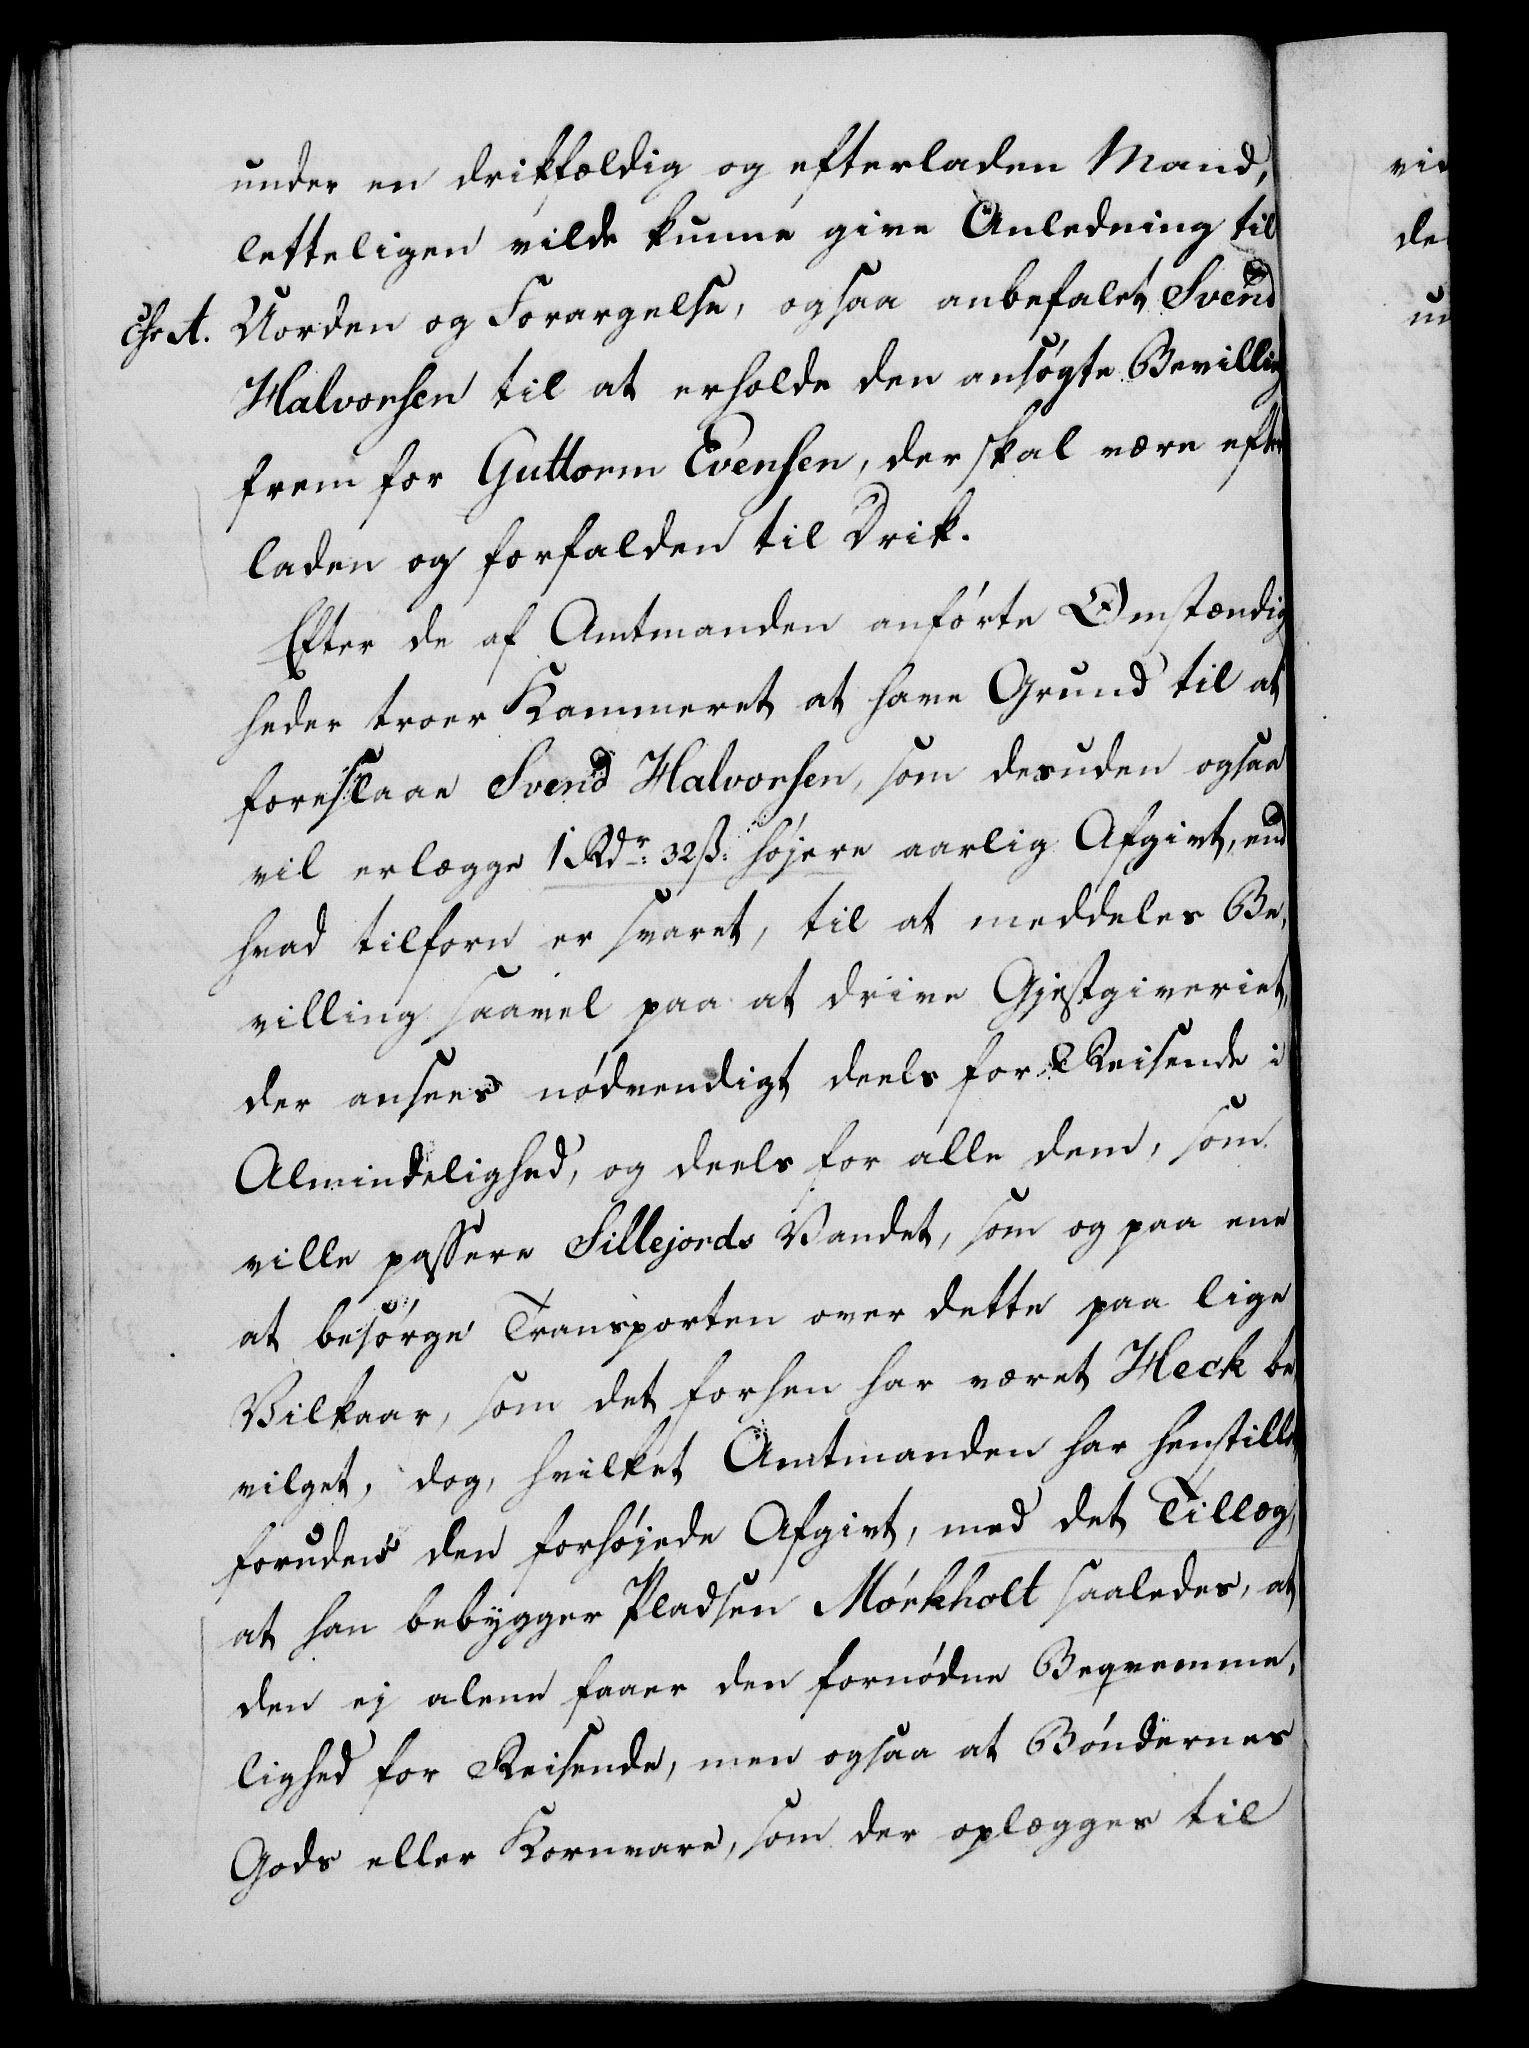 under en drikfældig og efterladen Mand,
letteligen vilde kunne give Anledning til
cfr A. Uorden og Forargelse, ogsaa anbefalet Svend
Halvorsen til at erholde den ansøgte Bevilling
frem for Guttorm Evensen, der skal være efter
laden og forfalden til Drik.
Efter de af Amtmanden anførte Omstændig
heder troer Kammeret at have Grund til at
foreslaae Svend Halvorsen, som desuden ogsaa
vil erlægge 1 Rdr: 32 ß: højere aarlig Afgivt, end
hvad tilforn er svaret, til at meddeles Be,
villing saavel paa at drive Gjestgiveriet,
der ansees nødvendigt deels for Reisende i
Almindelighed, og deels for alle dem, som
ville passere Sillejords Vandet, som og paa ene
at besørge Transporten over dette paa lige
Vilkaar, som det forhen har været Heck be
vilget, dog, hvilket Amtmanden har henstillet,
foruden den forhøjede Afgivt, med det Tillæg,
at han bebygger Pladsen Mørkholt saaledes, at
den ej alene faaer den fornødne Beqvemme,
lighed for Reisende, men ogsaa at Bøndernes
Gods eller Kornvare, som der oplægges til